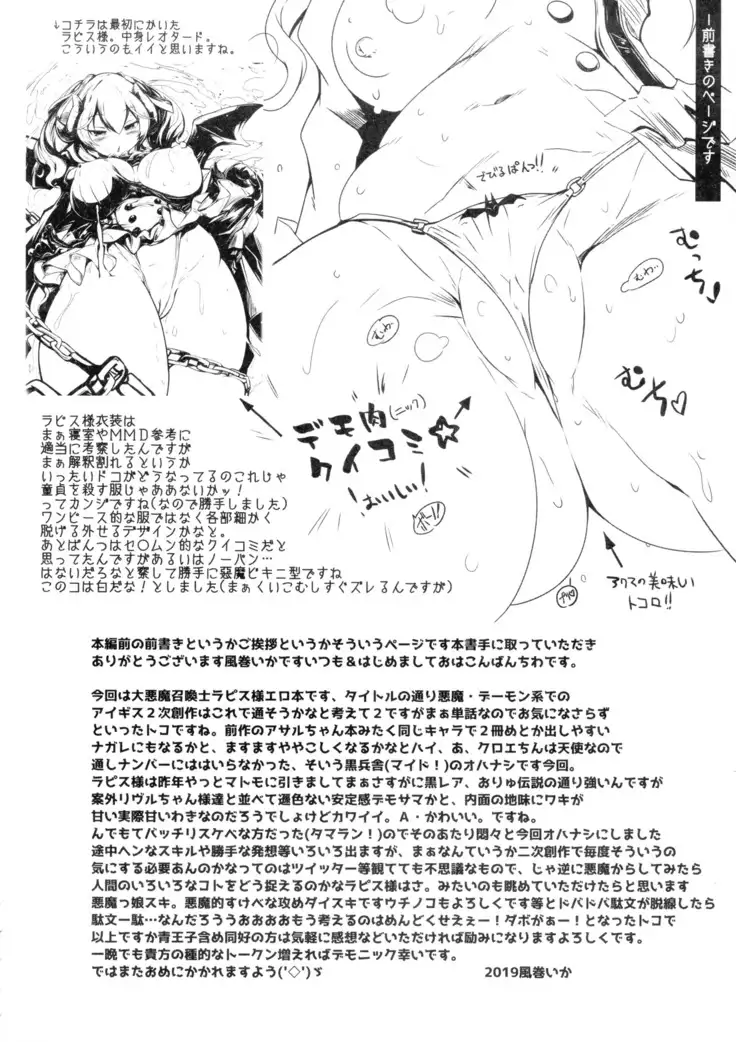 －前書きのページです
↓コチラは最初にかいた
ラピス様。中身レオタード。
こういうのもイイと思いますね。
さびるぱんつ!!
むっち♪
むち♡
デモ肉(ニック)
クイコミ☆
おいしい!
アクマの美味しい
トコロ!!
ラピス様衣装は
まぁ寝室やMMD参考に
適当に考察したんですが
まぁ解釈割れるというか
いったいドコがどうなってるのこれじゃ
童貞を殺す服じゃああないかッ!
ってカンジですね(なので勝手しました)
ワンピース的な服ではなく各部細かく
脱げる外せるデザインかなと。
あとぱんつはセ〇ムン的なクイコミだと
思ってたんですがあるいはノーパン…
はないだろなと察して勝手に惡魔ビキニ型ですね
このコは白だな!としました(まぁくいこむしすぐズレるんですが)
本編前の前書きというかご挨拶というかそういうページです本書手に取っていただき
ありがとうございます風巻いかですいつも＆はじめましておはこんばんちわです。
今回は大悪魔召喚士ラピス様エロ本です、タイトルの通り悪魔・デーモン系での
アイギス２次創作はこれで通そうかなと考えて２ですがまぁ単話なのでお気になさらず
といったトコですね。前作のアサルちゃん本みたく同じキャラで２冊めとか出しやすい
ナガレにもなるかと、ますますややこしくなるかなとハイ、あ、クロエちんは天使なので
通しナンバーにははいらなかった、そいう黒兵舎(マイド！)のオハナシです今回。
ラピス様は昨年やっとマトモに引きましてまぁさすがに黒レア、おりゅ伝説の通り強いんですが
案外リヴルちゃん様達と並べて遜色ない安定感デモサマかと、内面の地味にワキが
甘い実際甘いわきなのだろうでしょけどカワイイ。A・かわいい。ですね。
んでもてバッチリスケベな方だった(タマラン！)のでそのあたり悶々と今回オハナシにしました
途中ヘンなスキルや勝手な発想等いろいろ出ますが、まぁなんていうか二次創作で毎度そういうの
気にする必要あんのかなってのはツイッター等観てても不思議なもので、じゃ逆に悪魔からしてみたら
人間のいろいろなコトをどう捉えるのかなラピス様はさ。みたいのも眺めていただけたらと思います
悪魔っ娘スキ。悪魔的すけべな攻めダイスキですウチノコもよろしくです等とドバドバ駄文が脱線したら
駄文一駄…なんだろううおおおおもう考えるのはめんどくせえぇー！ダボがぁー！となったトコで
以上ですが青王子含め同好の方は気軽に感想などいただければ励みになりますよろしくです。
一晩でも貴方の種的なトークン増えればデモニック幸いです。
ではまたおめにかかれますよう('◇')ゞ
2019風巻いか